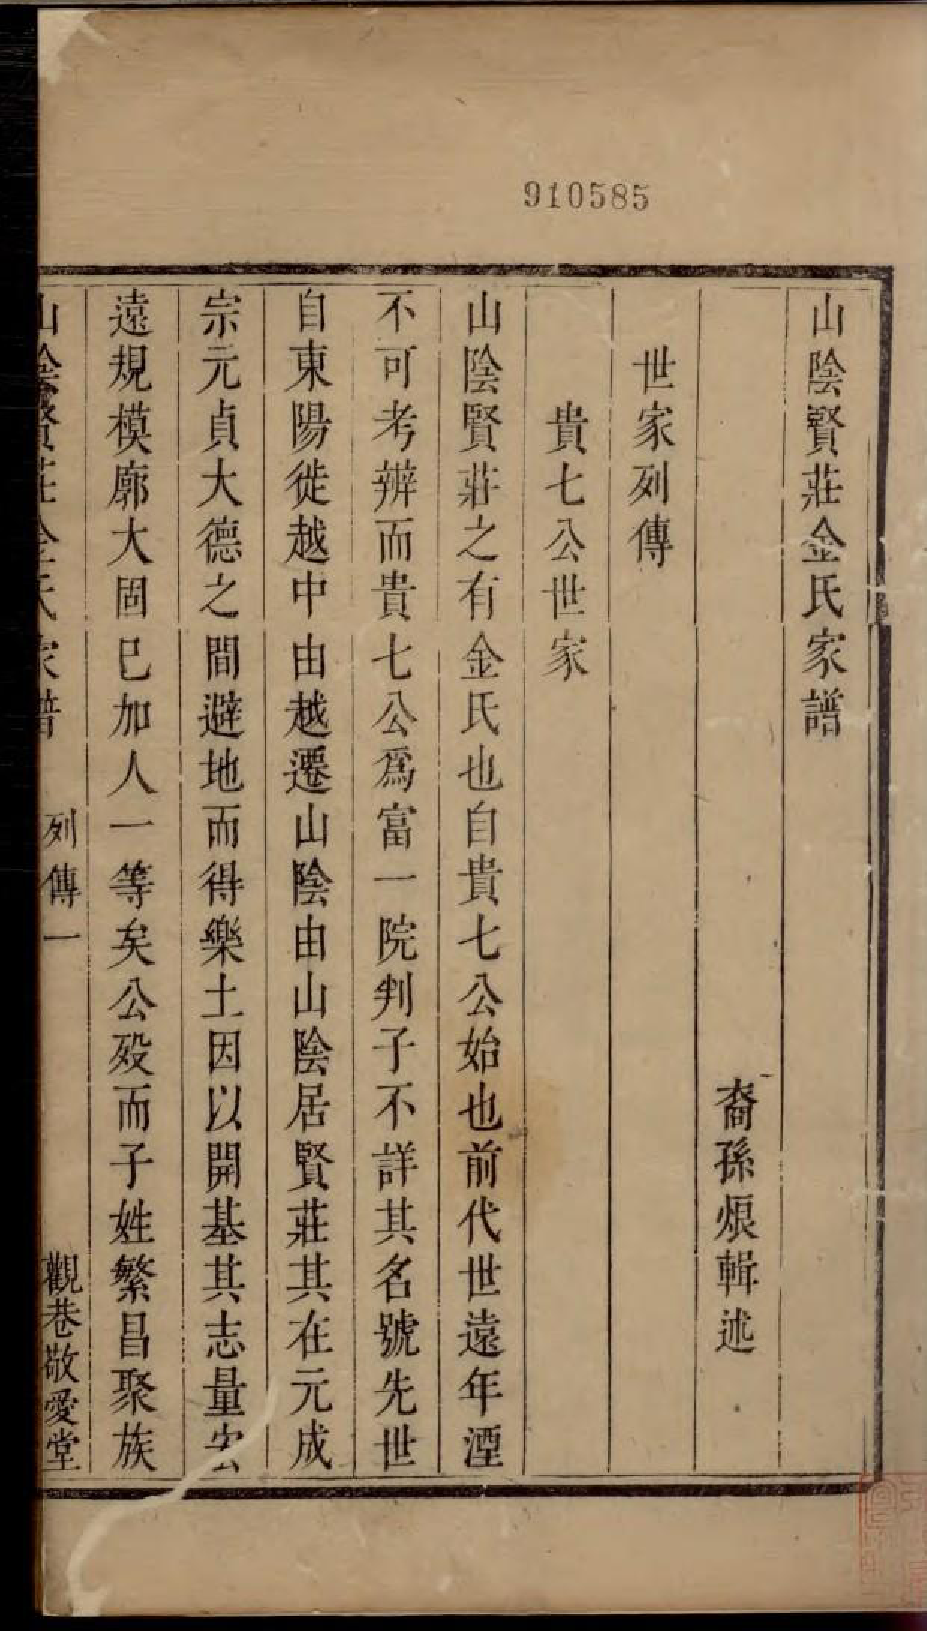 910585
山陰賢莊金氏家譜
裔孫烺輯述
世家列傳
貴七公世家
山陰賢莊之有金氏也自貴七公始也前代世遠年湮
不可考辨而貴七公爲富一院判子不詳其名號先世
自東陽徙越中由越遷山陰由山陰居賢莊其在元成
宗元貞大德之間避地而得樂土因以開基其志量宏
遠規模廓大固已加人一等矣公殁而子姓繁昌聚族
山陰賢莊金氏家譜 列傳一 觀巷敬愛堂